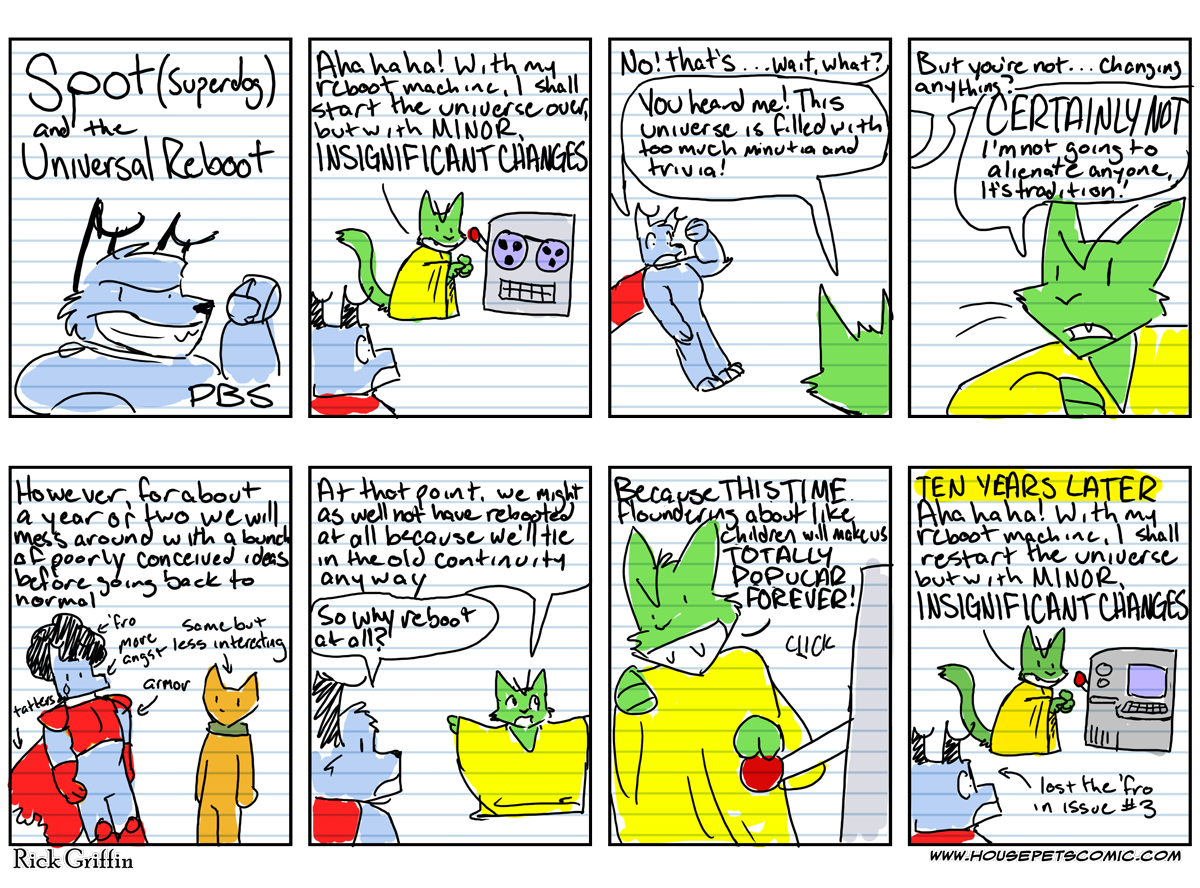 Spot (Superdog)
and the
Universal Reboot
PBS
Aha haha! With my
reboot machine, I shall
start the universe over,
but with MINOR,
INSIGNIFICANT CHANGES
No! that's...wait, what?
You heard me! This
universe is filled with
too much minutia and
trivia!
But you're not... changing
anything?
CERTAINLY NOT
I'm not going to
alienate anyone,
It's tradition!
However, for about
a year or two we will
mess around with a bunch
of poorly conceived ideas
before going back to
normal
'fro
more
angst
armor
tatters
same but
less interesting
At that point, we might
as well not have rebooted
at all because we'll tie
in the old continuity
anyway
So why reboot
at all?
Because THIS TIME
floundering about like
children will make us
TOTALLY
POPULAR
FOREVER!
CLICK
TEN YEARS LATER
Aha haha! With my
reboot machine, I shall
restart the universe
but with MINOR,
INSIGNIFICANT CHANGES
lost the 'fro
in issue #3
Rick Griffin
WWW.HOUSEPETSCOMIC.COM